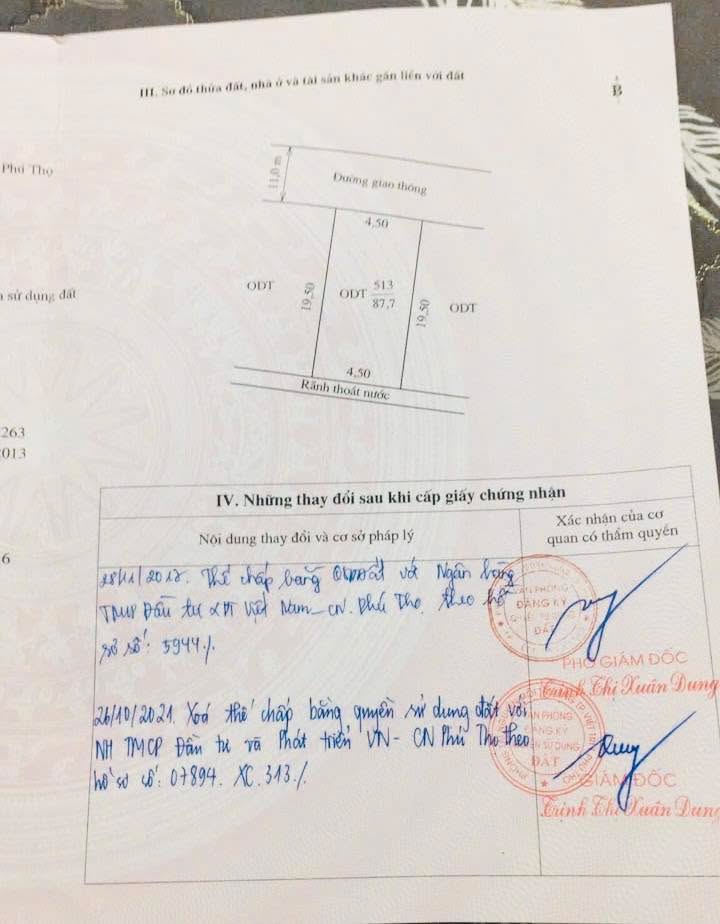 III. Sơ đồ thửa đất, nhà ở và tài sản khác gắn liền với đất
B
Phú Thọ
11,0 m
Đường giao thông
4,50
n sử dụng đất
ODT
19,50
ODT 513
87,7
19,50
ODT
4,50
Rãnh thoát nước
263
013
IV. Những thay đổi sau khi cấp giấy chứng nhận
Nội dung thay đổi và cơ sở pháp lý
Xác nhận của cơ
quan có thẩm quyền
6
Thế chấp bằng với Ngân hàng
TMCP Đầu tư & PT Việt Nam - CN. Phú Thọ theo hồ
sơ số: 5944./.
VĂN PHÒNG
ĐĂNG KÝ
ĐẤT
PHÓ GIÁM ĐỐC
Trịnh Thị Xuân Dung
26/10/2021. Xoá thế chấp bằng quyền sử dụng đất với
NH TMCP Đầu tư và Phát triển VN - CN Phú Thọ theo
hồ sơ số: 07894. XC.313./.
VĂN PHÒNG
ĐĂNG KÝ
QUYỀN SỬ DỤNG
ĐẤT
GIÁM ĐỐC
Trịnh Thị Xuân Dung